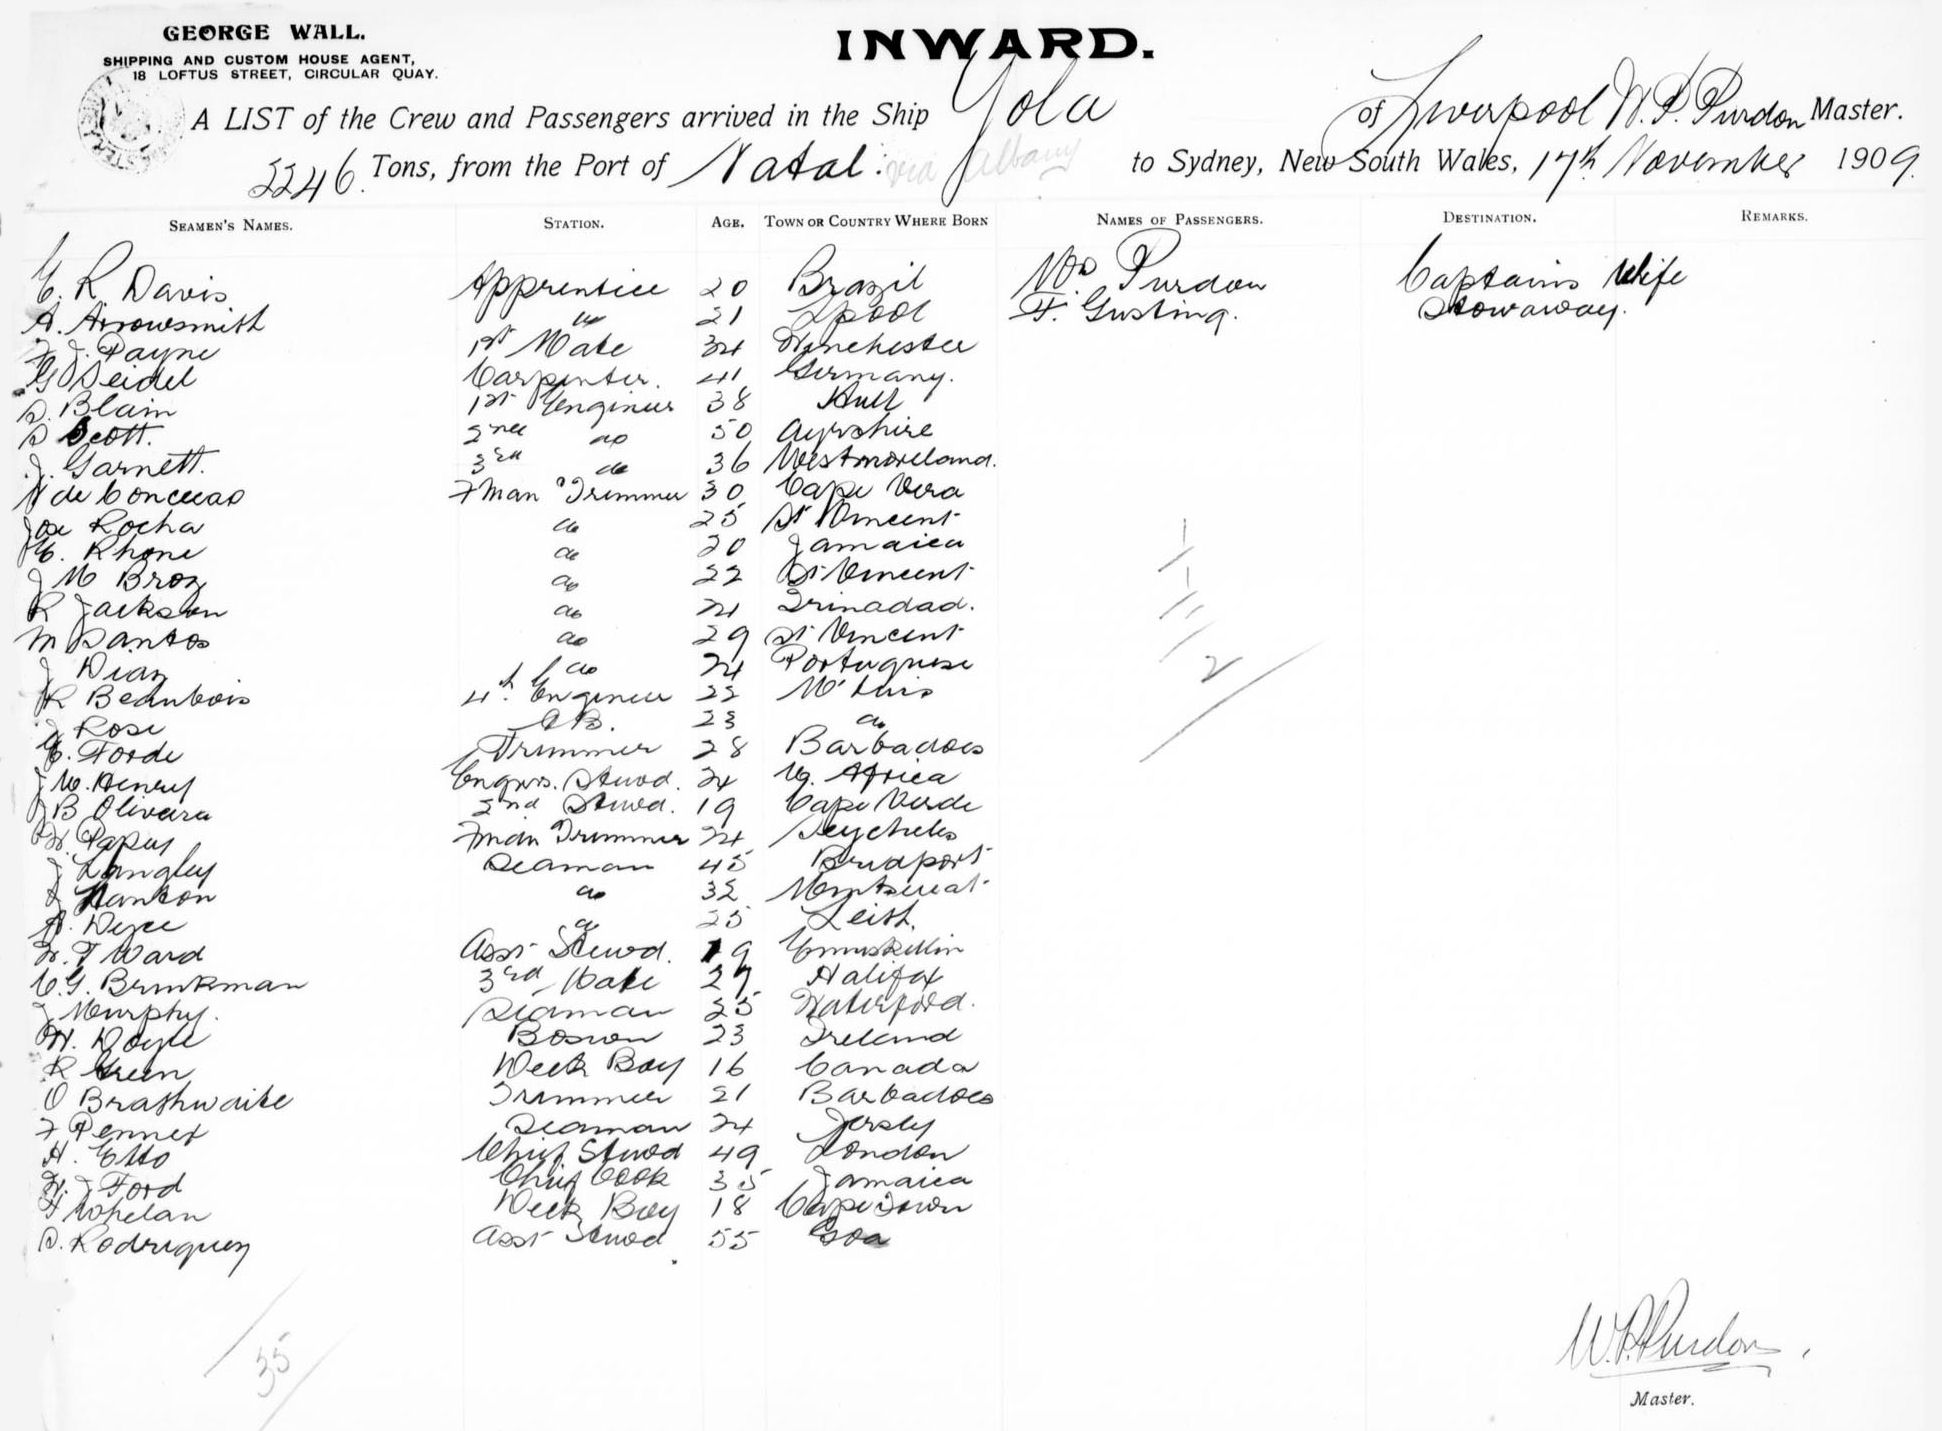 GEORGE WALL.
SHIPPING AND CUSTOM HOUSE AGENT,
18 LOFTUS STREET, CIRCULAR QUAY.
INWARD.
A LIST of the Crew and Passengers arrived in the Ship Yola of Liverpool W. P. Purdon Master.
2246 Tons, from the Port of Natal: via Albany to Sydney, New South Wales, 17th November 1909.
SEAMEN'S NAMES. STATION. AGE. TOWN OR COUNTRY WHERE BORN NAMES OF PASSENGERS. DESTINATION. REMARKS.
C. R Davis Apprentice 20 Brazil Mrs Purdon Captains Wife
A. Arrowsmith do 21 Lpool F. Gusting. Stowaway.
F. J. Payne 1st Mate 34 Winchester
G Seidel Carpenter. 41 Germany.
D. Blain 1st Engineer 38 Hull
D Scott. 2nd do 50 Ayrshire
J. Garnett. 3rd do 36 Westmoreland.
N de Conceicao Fman & Trimmer 30 Cape Vera
Jose Rocha do 25 St Vincent
E. Rhone do 20 Jamaica
J M Broz do 22 St Vincent
R Jackson do 21 Trinadad.
M Santos do 29 St Vincent
J Diaz do 24 Portuguese
R Beaubois 4th Engineer 22 Mt Luis
J Rose A B. 23 do
C. Forde Trimmer 28 Barbadoes
J W. Henry Engrs. Stewd. 24 W. Africa
J B Oliveira 2nd Stewd. 19 Cape Verde
W. Papuy Fman & Trimmer 24 Seychelles
J Langley Seaman 45 Bridport
J Hanton do 32 Montserrat
A. Dyce do 25 Leith.
W. T Ward Asst Stewd. 19 Enniskillin
C. G. Brinkman 3rd Mate 27 Halifax
J Murphy. Seaman 25 Waterford.
W. Doyle Boswn 23 Ireland
R Green Deck Boy 16 Canada
O Brathwaite Trimmer 21 Barbadoes
F Penney Seaman 24 Jersey
A. Otto Chief Stewd 49 London
W. J Ford Chief Cook 35 Jamaica
F Whelan Deck Boy 18 Cape Town
D. Rodriguez Asst Stewd 55 Goa
2
35
W. P. Purdon
Master.